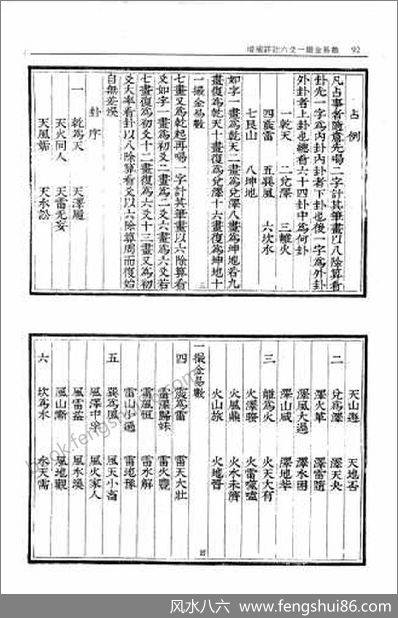 六爻一撮金易數 92
占例
凡占事者隨意先唱二字計其筆畫以八除算看
卦先一字為內卦內卦者下卦也後一字為外卦
外卦者上卦也總看六十四卦中為何卦
一乾天 二兌澤 三離火
四震雷 五巽風 六坎水
七艮山 八坤地
如字一畫為乾天二畫復為兌澤八畫為坤地若九
畫復為乾天十畫復為兌澤十六畫復為坤地
一撮金易數 二
七畫又為乾起再唱一字計其筆畫以六除算看
爻如字一畫為初爻二畫為二爻六畫為六爻若
七畫復為初爻十二畫復為六爻十三畫又為初
爻大率看卦以八除算看爻以六除算周而復始
自無差誤
卦序
一 乾為天 天澤履
天火同人 天雷无妄
天風姤 天水訟
天山遯 天地否
二 兌為澤 澤天夬
澤火革 澤雷隨
澤風大過 澤水困
澤山咸 澤地萃
三 離為火 火天大有
火澤睽 火雷噬嗑
火風鼎 火水未濟
火山旅 火地晉
一撮金易數
四 震為雷 雷天大壯
雷澤歸妹 雷火豐
雷風恆 雷水解
雷山小過 雷地豫
五 巽為風 風天小畜
風澤中孚 風火家人
風雷益 風水渙
風山漸 風地觀
六 坎為水 水天需
风水八六 www.fengshui86.com